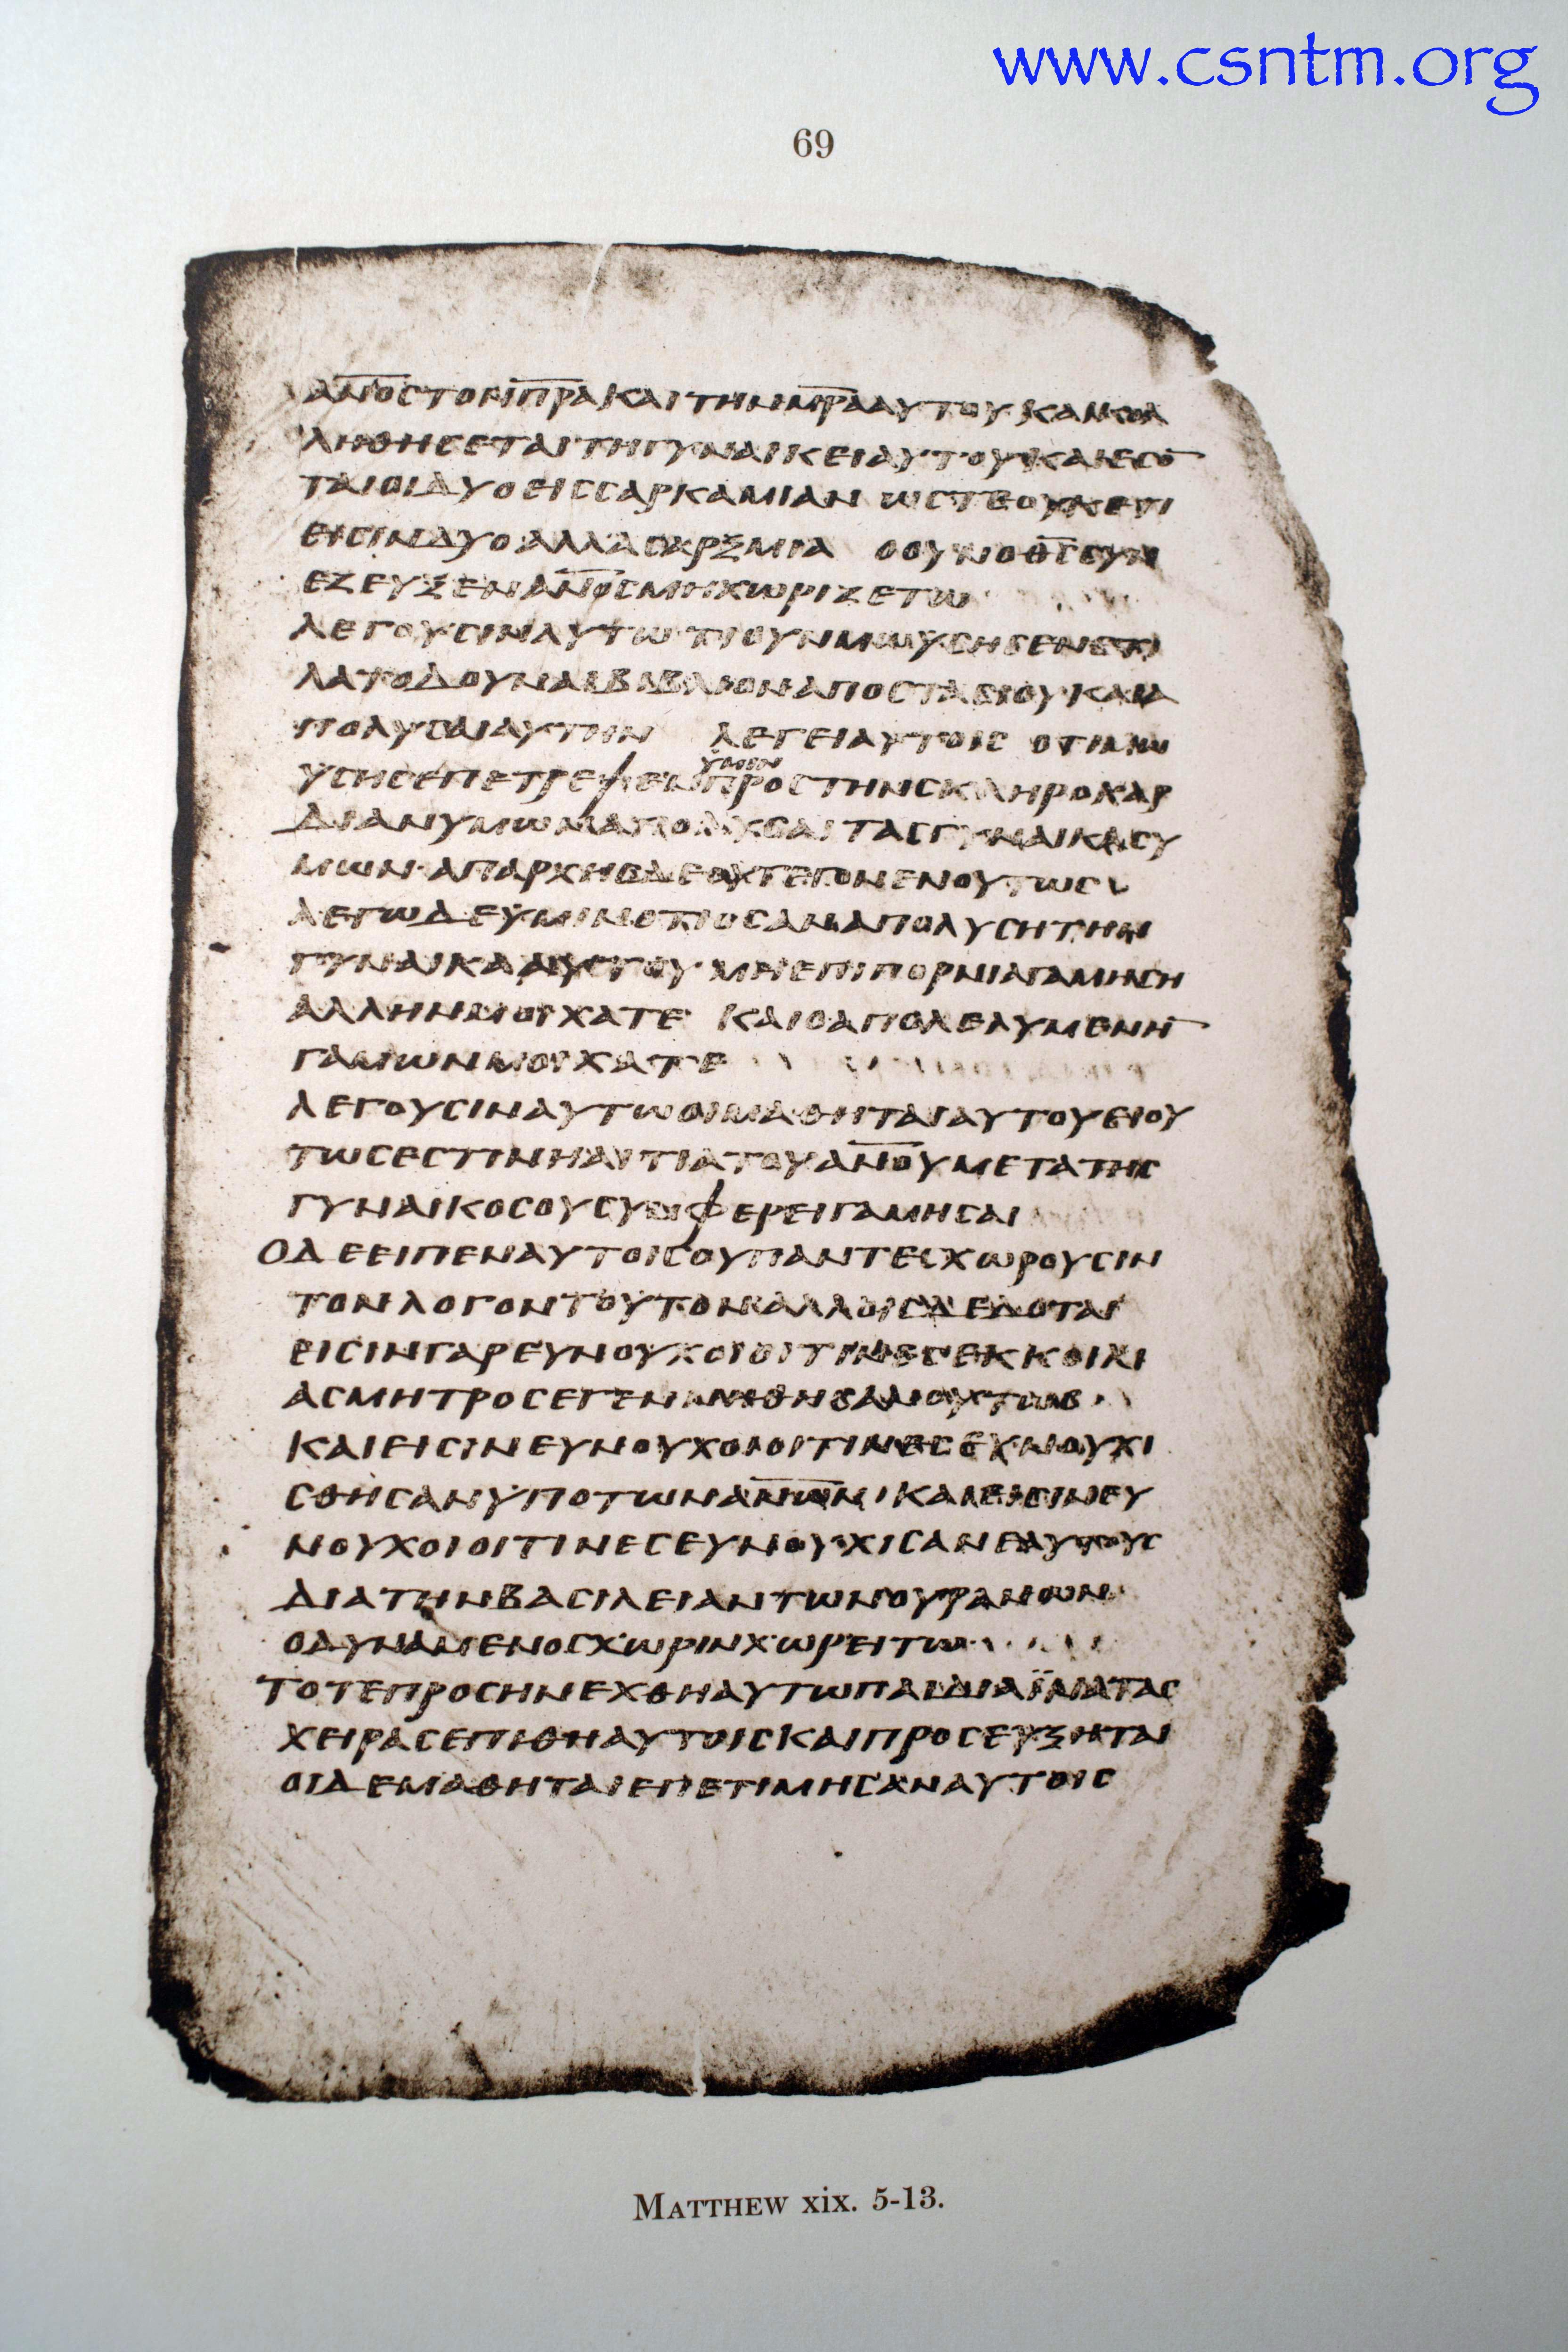 www.csntm.org
69
ΑΝΟΣΤΟΝΠΡΑΚΑΙΤΗΝΜΡΑΑΥΤΟΥΚΑΙΚΟΛ
ΛΗΘΗΣΕΤΑΙΤΗΓΥΝΑΙΚΕΙΑΥΤΟΥΚΑΙΕΣΟ
ΤΑΙΟΙΔΥΟΕΙΣΣΑΡΚΑΜΙΑΝ ΩΣΤΕΟΥΚΕΤΙ
ΕΙΣΙΝΔΥΟΑΛΛΑΣΑΡΞΜΙΑ ΟΟΥΝΟΘΣΣΥΝ
ΕΖΕΥΞΕΝΑΝΟΣΜΗΧΩΡΙΖΕΤΩ
ΛΕΓΟΥΣΙΝΑΥΤΩΤΙΟΥΝΜΩΥΣΗΣΕΝΕΤΙ
ΛΑΤΟΔΟΥΝΑΙΒΙΒΛΙΟΝΑΠΟΣΤΑΣΙΟΥΚΑΙΑ
ΠΟΛΥΣΑΙΑΥΤΗΝ ΛΕΓΕΙΑΥΤΟΙΣ ΟΤΙΜΩ
ΥΜΙΝ
ΥΣΗΣΕΠΕΤΡΕΨΕΝΠΡΟΣΤΗΝΣΚΛΗΡΟΚΑΡ
ΔΙΑΝΥΜΩΝΑΠΟΛΥΣΑΙΤΑΣΓΥΝΑΙΚΑΣΥ
ΜΩΝ·ΑΠΑΡΧΗΣΔΕΟΥΓΕΓΟΝΕΝΟΥΤΩΣ
ΛΕΓΩΔΕΥΜΙΝΟΤΙΟΣΑΝΑΠΟΛΥΣΗΤΗΝ
ΓΥΝΑΙΚΑΑΥΤΟΥ ΜΗΕΠΙΠΟΡΝΙΑΓΑΜΗΣΗ
ΑΛΛΗΝΜΟΙΧΑΤΕ ΚΑΙΟΑΠΟΛΕΛΥΜΕΝΗ
ΓΑΜΩΝΜΟΙΧΑΤΕ
ΛΕΓΟΥΣΙΝΑΥΤΩΟΙΜΑΘΗΤΑΙΑΥΤΟΥΕΙΟΥ
ΤΩΣΕΣΤΙΝΗΑΙΤΙΑΤΟΥΑΝΟΥΜΕΤΑΤΗΣ
ΓΥΝΑΙΚΟΣΟΥΣΥΜΦΕΡΕΙΓΑΜΗΣΑΙ
ΟΔΕΕΙΠΕΝΑΥΤΟΙΣΟΥΠΑΝΤΕΣΧΩΡΟΥΣΙΝ
ΤΟΝΛΟΓΟΝΤΟΥΤΟΝΑΛΛΟΙΣΔΕΔΟΤΑΙ
ΕΙΣΙΝΓΑΡΕΥΝΟΥΧΟΙΟΙΤΙΝΕΣΕΚΚΟΙΛΙ
ΑΣΜΗΤΡΟΣΕΓΕΝΝΗΘΗΣΑΝΟΥΤΩΣ
ΚΑΙΕΙΣΙΝΕΥΝΟΥΧΟΙΟΙΤΙΝΕΣΕΥΝΟΥΧΙ
ΣΘΗΣΑΝΥΠΟΤΩΝΑΝΩΝ ΚΑΙΕΙΣΙΝΕΥ
ΝΟΥΧΟΙΟΙΤΙΝΕΣΕΥΝΟΥΧΙΣΑΝΕΑΥΤΟΥΣ
ΔΙΑΤΗΝΒΑΣΙΛΕΙΑΝΤΩΝΟΥΡΑΝΩΝ
ΟΔΥΝΑΜΕΝΟΣΧΩΡΙΝΧΩΡΕΙΤΩ
ΤΟΤΕΠΡΟΣΗΝΕΧΘΗΑΥΤΩΠΑΙΔΙΑΪΝΑΤΑΣ
ΧΕΙΡΑΣΕΠΙΘΗΑΥΤΟΙΣΚΑΙΠΡΟΣΕΥΞΗΤΑΙ
ΟΙΔΕΜΑΘΗΤΑΙΕΠΕΤΙΜΗΣΑΝΑΥΤΟΙΣ
MATTHEW xix. 5-13.